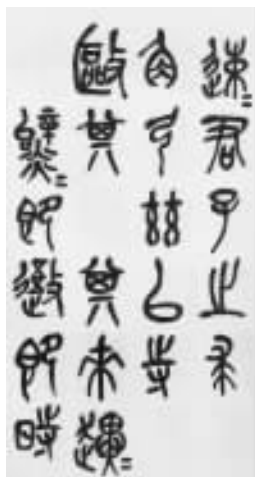 速=君子之求
角弓茲以寺
敺其其來
即即時